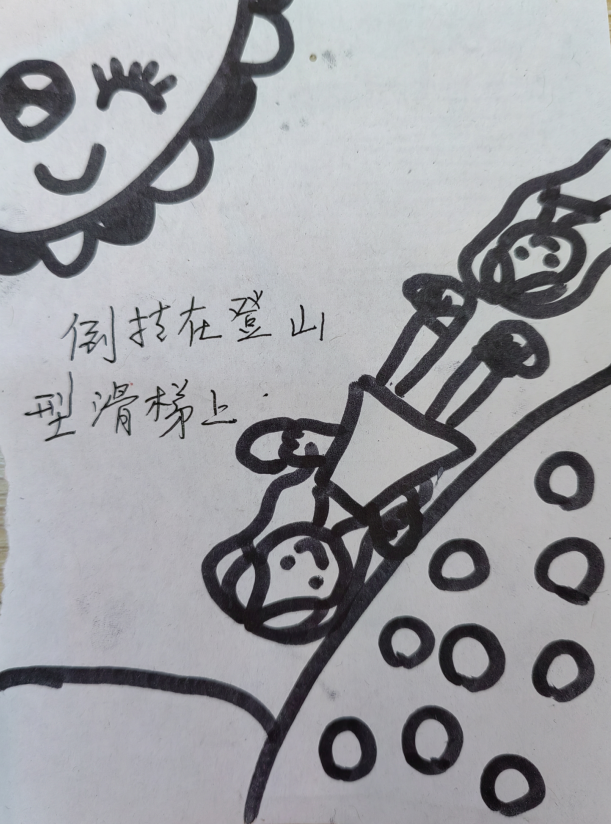 倒挂在登山
型滑梯上.